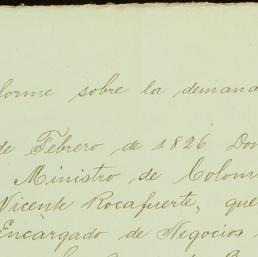 forme sobre la demand
de Febrero de 1826 Don
Ministro de Colom
Vicente Rocafuerte, que
Encargado de Negocios